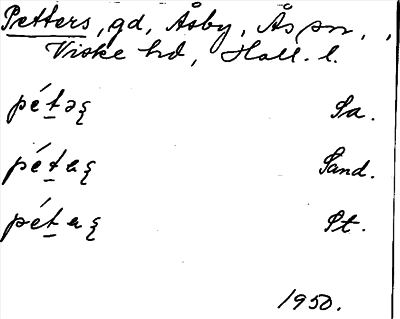 Petters, gd, Åsby, Ås sn,,
Viske hd, Hall. l.
pétəʂ Sa.
pétaʂ Sand.
pétaʂ St.
1950.